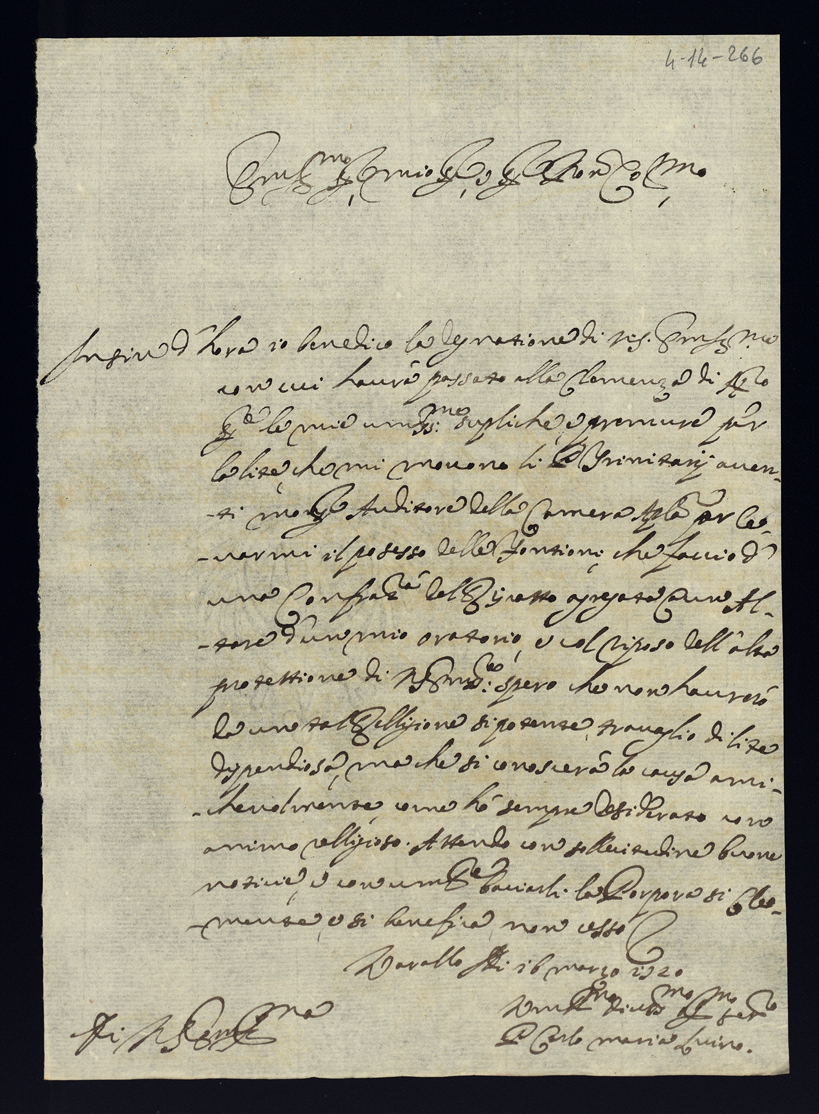 4-14-266
Em.mo Sig.r mio Sig.r e Pron Col.mo
Insin d'hora io benedico la degnatione di V.S. Em.ma
con cui haurà passato alla Clemenza di
le mie umiss.me supliche, e premure per
la lite, che mi movono li PP Trinitarij aven-
-ti mons.g Auditore della Camera Ap.la per le-
-varmi il posesso delle Fontioni, che faccio d'
una Confrat.a del Riscatto agregata ad un Al-
-tare d'un mio oratorio, e col riposo dell'alta
protettione di V.S. Em.ma spero che non haurerò
da una tal Religione si potente, travaglio di lite
dispendiosa, ma che si conoscerà la causa ami-
-chevolmente, come hò sempre desiderato con
animo religioso. Attendo con sollecitudine buone
notitie, e con baciarli la Porpora si cle-
-mente, e si benefica, non cesso
Varallo li 16 marzo 1720
Di V.S. Em.ma
P Carlo maria Luino.